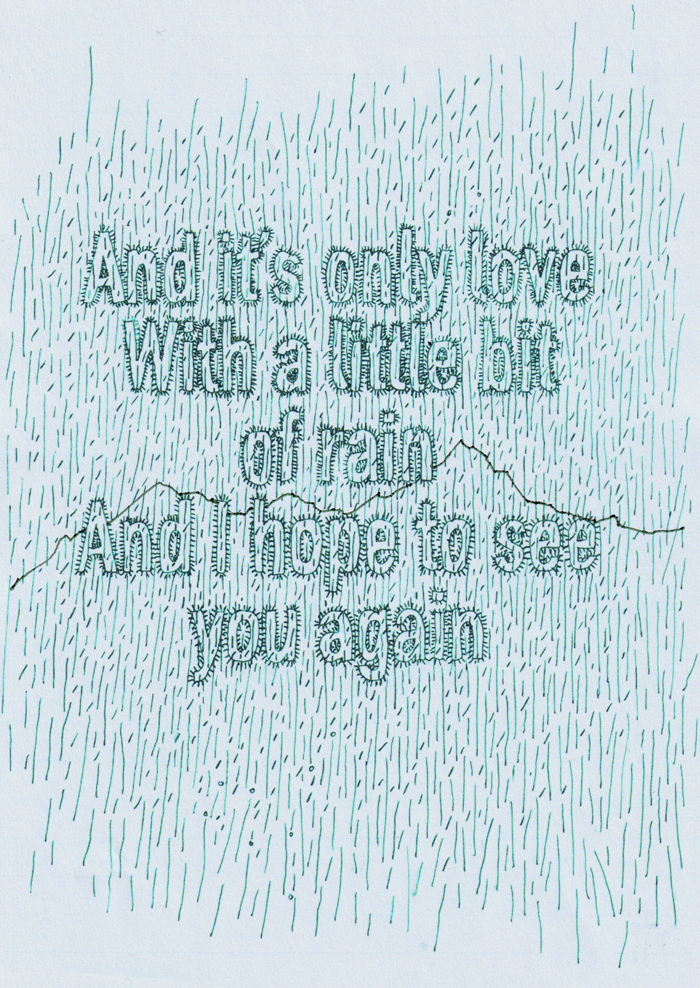 And it's only love
With a little bit
of rain
And I hope to see
you again